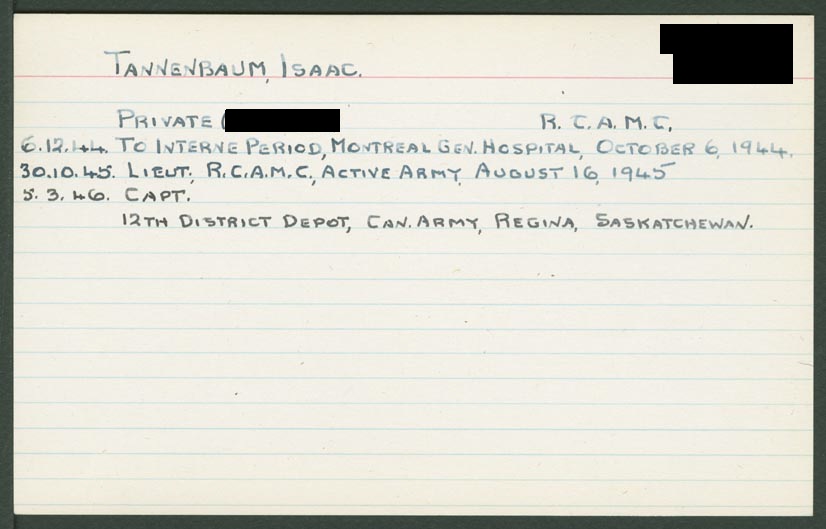 TANNENBAUM, ISAAC.
PRIVATE ( R.C.A.M.C.
6.12.44. TO INTERNE PERIOD, MONTREAL GEN. HOSPITAL, OCTOBER 6, 1944.
30.10.45. LIEUT., R.C.A.M.C., ACTIVE ARMY, AUGUST 16, 1945
5.3.46. CAPT.
12TH DISTRICT DEPOT, CAN. ARMY, REGINA, SASKATCHEWAN.